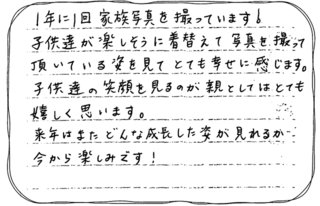 1年に1回家族写真を撮っています!
子供達が楽しそうに着替えて写真を撮って
頂いている姿を見てとても幸せに感じます。
子供達の笑顔を見るのが親としてはとても
嬉しく思います。
来年はまたどんな成長した姿が見れるか
今から楽しみです!